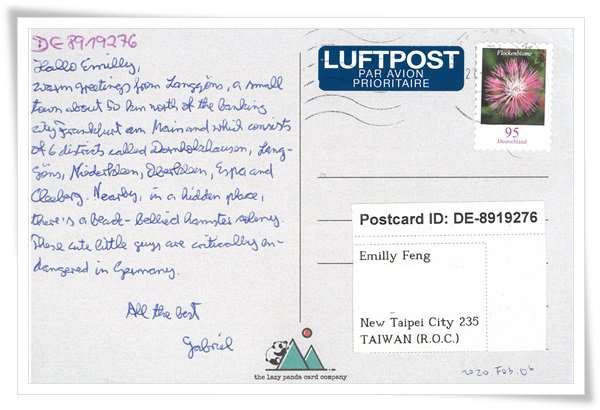 DE 8919276
Hallo Emilly,
warm greetings from Langgöns, a small
town about 50 km north of the banking
city Frankfurt am Main and which consists
of 6 districts called Dornholzhausen, Lang-
göns, Niederkleen, Oberkleen, Espa and
Cleeberg. Nearby, in a hidden place,
there is a black-bellied hamster colony.
These cute little guys are critically en-
dangered in Germany.
All the best
Gabriel
LUFTPOST
PAR AVION
PRIORITAIRE
Flockenblume
95
Deutschland
Postcard ID: DE-8919276
Emilly Feng
New Taipei City 235
TAIWAN (R.O.C.)
the lazy panda card company
2020 Feb. 06